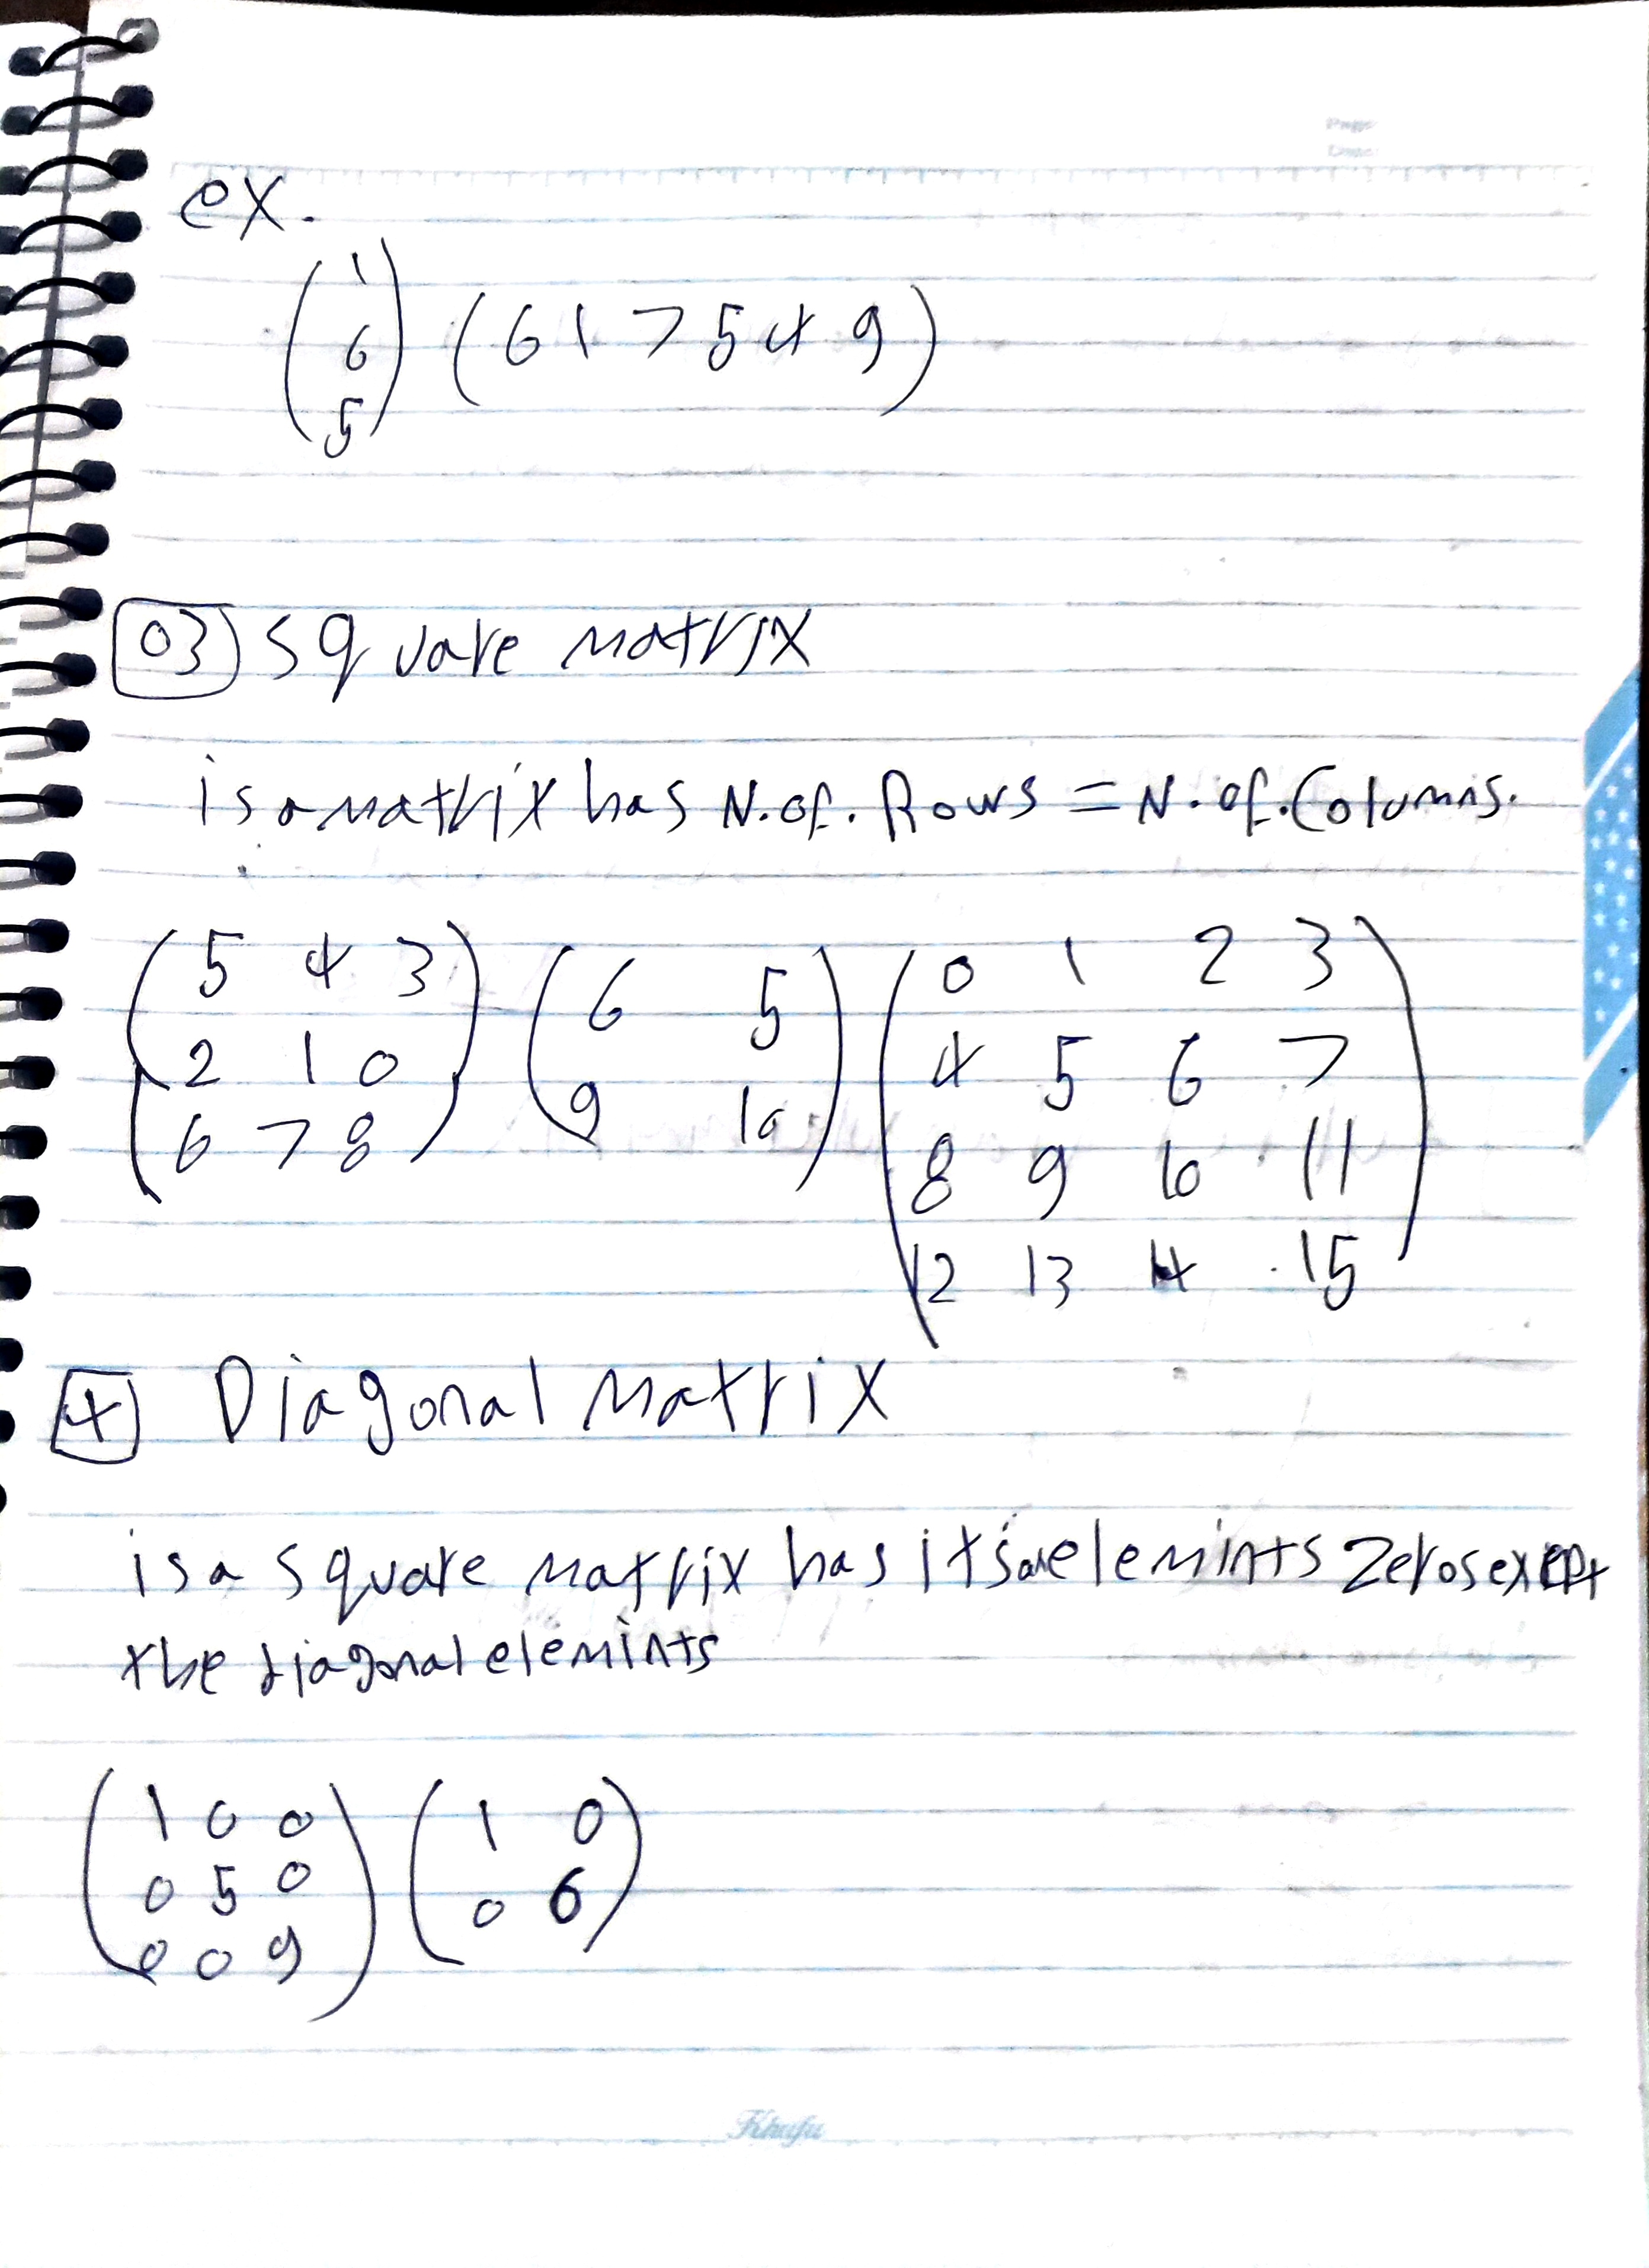 Page
Date
ex.
( 1 ) ( 6 1 7 5 4 9 )
6
5
03 Square matrix
is a matrix has N.of. Rows = N.of.Columns.
( 5 4 3 ) ( 6 5 ) ( 0 1 2 3 )
2 1 0 9 10 4 5 6 7
6 7 8 8 9 10 11
12 13 14 15
4 Diagonal Matrix
is a square matrix has its elemints Zeros except
the diagonal elemints
( 1 0 0 ) ( 1 0 )
0 5 0 0 6
0 0 9
Khufu